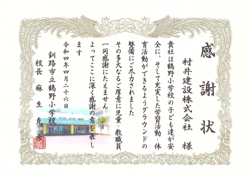 感謝状
村井建設株式会社 様
貴社は鶴野小学校の子ども達が安
全に、そして充実した学習活動・体
育活動ができるようグラウンドの
整備にご尽力されました
その多大なるご厚意に児童・教職員
一同感謝にたえません
よってここに深く感謝の意を表し
ます
令和四年四月二十六日
釧路市立鶴野小学校
校長 麻生